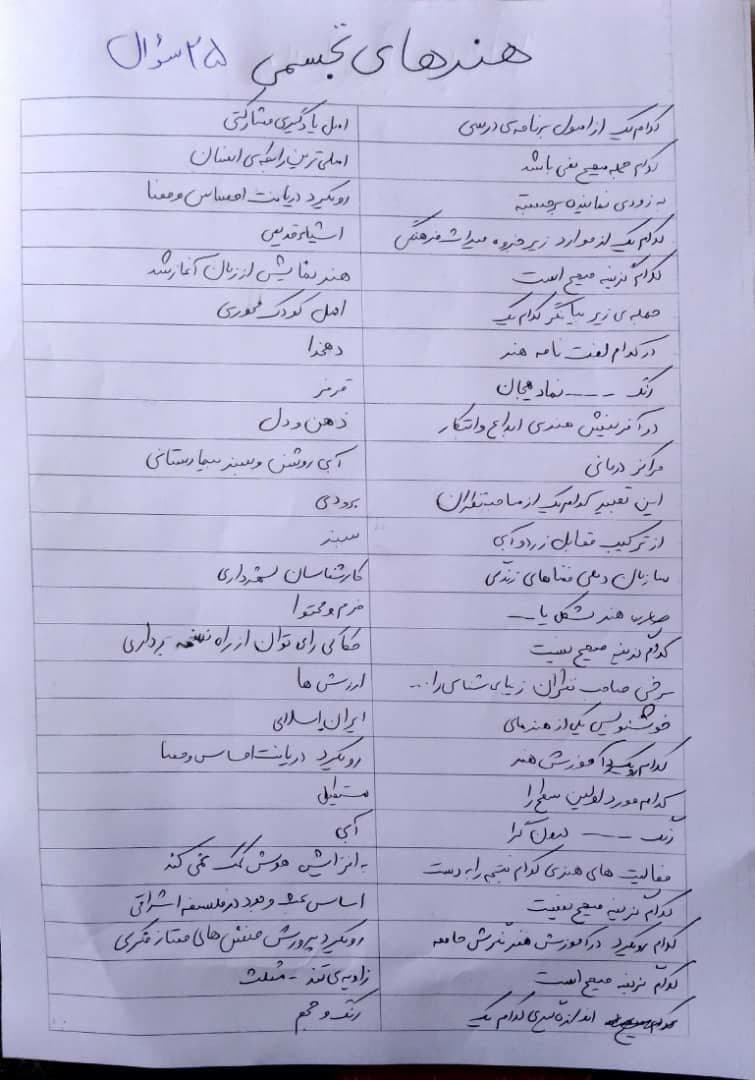 هنرهای تجسمی ۲۵ سؤال
کدام یک از اصول برنامه‌ی درسی اصل یادگیری مشارکتی
کدام جمله صحیح نمی باشد اصلی ترین رابطه‌ی انسان
به زودی نماینده برجسته رویکرد دریافت احساس و معنا
کدام یک از موارد زیر جزو میراث فرهنگی اشیاء قدیمی
کدام گزینه صحیح است هنر نمایش از زبان آغاز شد
جمله‌ی زیر بیانگر کدام یک اصل کودک محوری
در کدام لغت نامه هنر دهخدا
رنگ ---- نماد هیجان قرمز
در آفرینش هنری ابداع وابتکار ذهن و دل
مراکز درمانی آبی روشن و سبز بیمارستانی
این تعبیر کدام یک از صاحبنظران برودی
از ترکیب متقابل زرد و آبی سبز
سازمان دهی فضاهای زندگی کارشناسان
هنر شکل یا --- فرم و محتوا
کدام گزینه صحیح نیست حکاکی رای توان از راه نسخه برداری
برخی صاحب نظران زیبای شناسی را... ارزش ها
خوشنویسی یکی از هنرهای ایران اسلامی
کدام رویکرد آموزش هنر رویکرد دریافت احساس ومعنا
کدام مورد اولین سطح را مستطیل
رنگ ---- درون گرا آبی
فعالیت های هنری کدام نتیجه را به دست به افزایش هوش کمک نمی کند
کدام گزینه صحیح نیست اساس وجود در فلسفه اشراقی
کدام رویکرد در آموزش هنر نگرش جامعه رویکرد پرورش منش های ممتاز فکری
کدام گزینه صحیح است زاویه‌ی تند - مثلث
اندازه گیری کدام یک رنگ و حجم